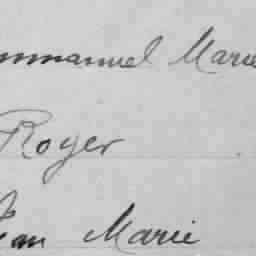 mmanuel Marie
Roger
Jean Marie